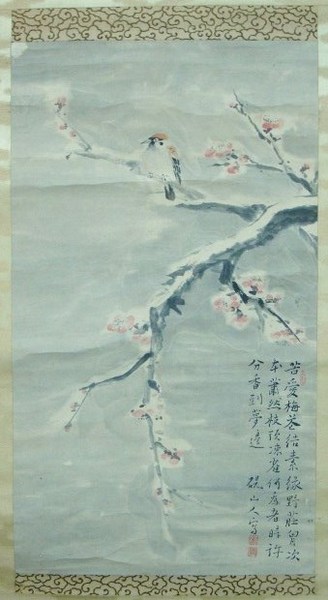 苦愛梅花結素緣野莊胷次
本蕭然枝頭凍雀何為者時許
分香到夢邊 山人寫